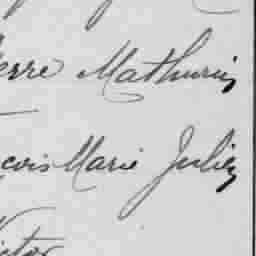 erre Mathurin
çois Marie Julien
ictor